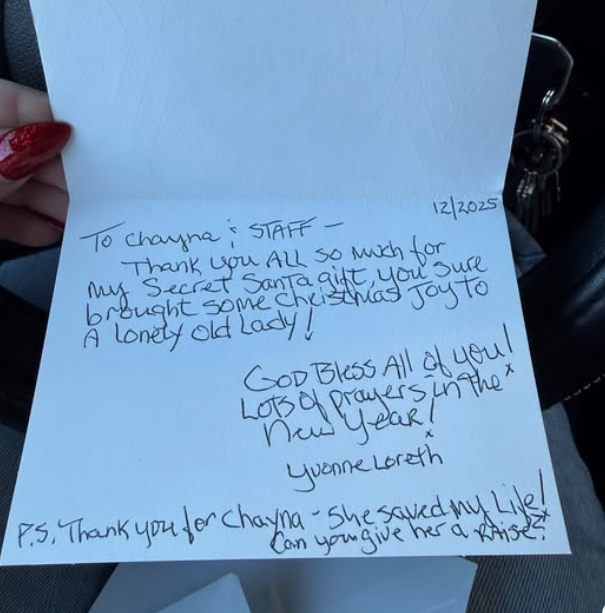 12/2025
To Chayna & STAFF -
Thank you ALL so much for
my Secret Santa gift, you sure
brought some Christmas Joy to
A Lonely old Lady!
GOD Bless All of you!
Lots of prayers in the
New Year!
Yvonne Loreth
P.S. Thank you for Chayna - She saved my Life!
Can you give her a RAise?